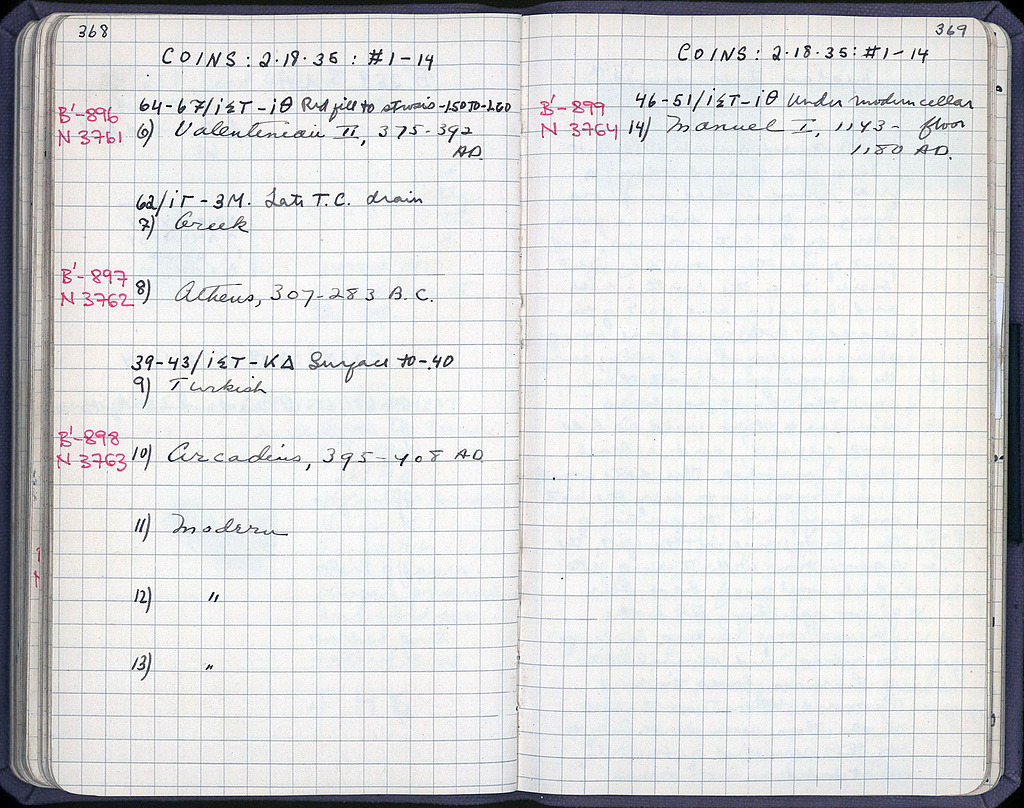 368
COINS: 2·18·35 : #1-14
64-67/ΙΣΤ-ΙΘ Red fill to stereo -1.50 TO -2.60
B'-896
N 3761
6) Valentinian II, 375-392
AD.
62/ΙΓ-3M. Late T.C. drain
7) Greek
B'-897
N 3762
8) Athens, 307-283 B.C.
39-43/ΙΣΤ-ΚΔ Surface to -.40
9) Turkish
B'-898
N 3763
10) Arcadius, 395-408 AD
11) Modern
12) "
13) "
369
COINS: 2·18·35: #1-14
46-51/ΙΣΤ-ΙΘ Under modern cellar
floor
B'-899
N 3764
14) Manuel I, 1143-
1180 AD.